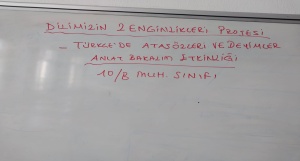 DİLİMİZİN ZENGİNLİKLERİ PROJESİ
- TÜRKÇE'DE ATASÖZLERİ VE DEYİMLER
ANLAT BAKALIM ETKİNLİĞİ
10/B MUH. SINIFI